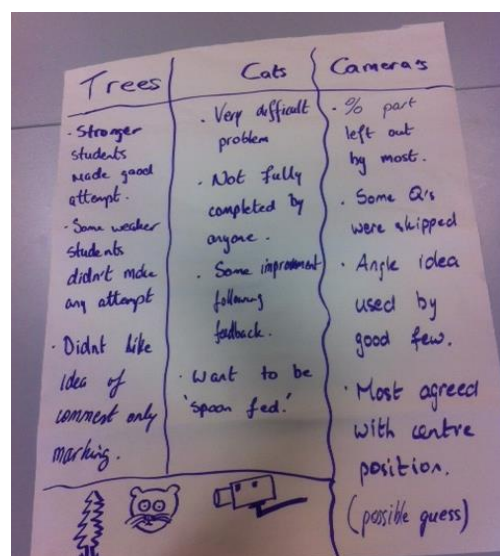 Trees
· Stronger
students
made good
attempt.
· Some weaker
students
didn't make
any attempt
· Didnt like
idea of
comment only
marking.
Cats
· Very difficult
problem
· Not fully
completed by
anyone.
· Some improvement
following
feedback.
· Want to be
'spoon fed.'
Camera's
· % part
left out
by most.
· Some Q's
were skipped
· Angle idea
used by
good few.
· Most agreed
with centre
position.
(possible guess)